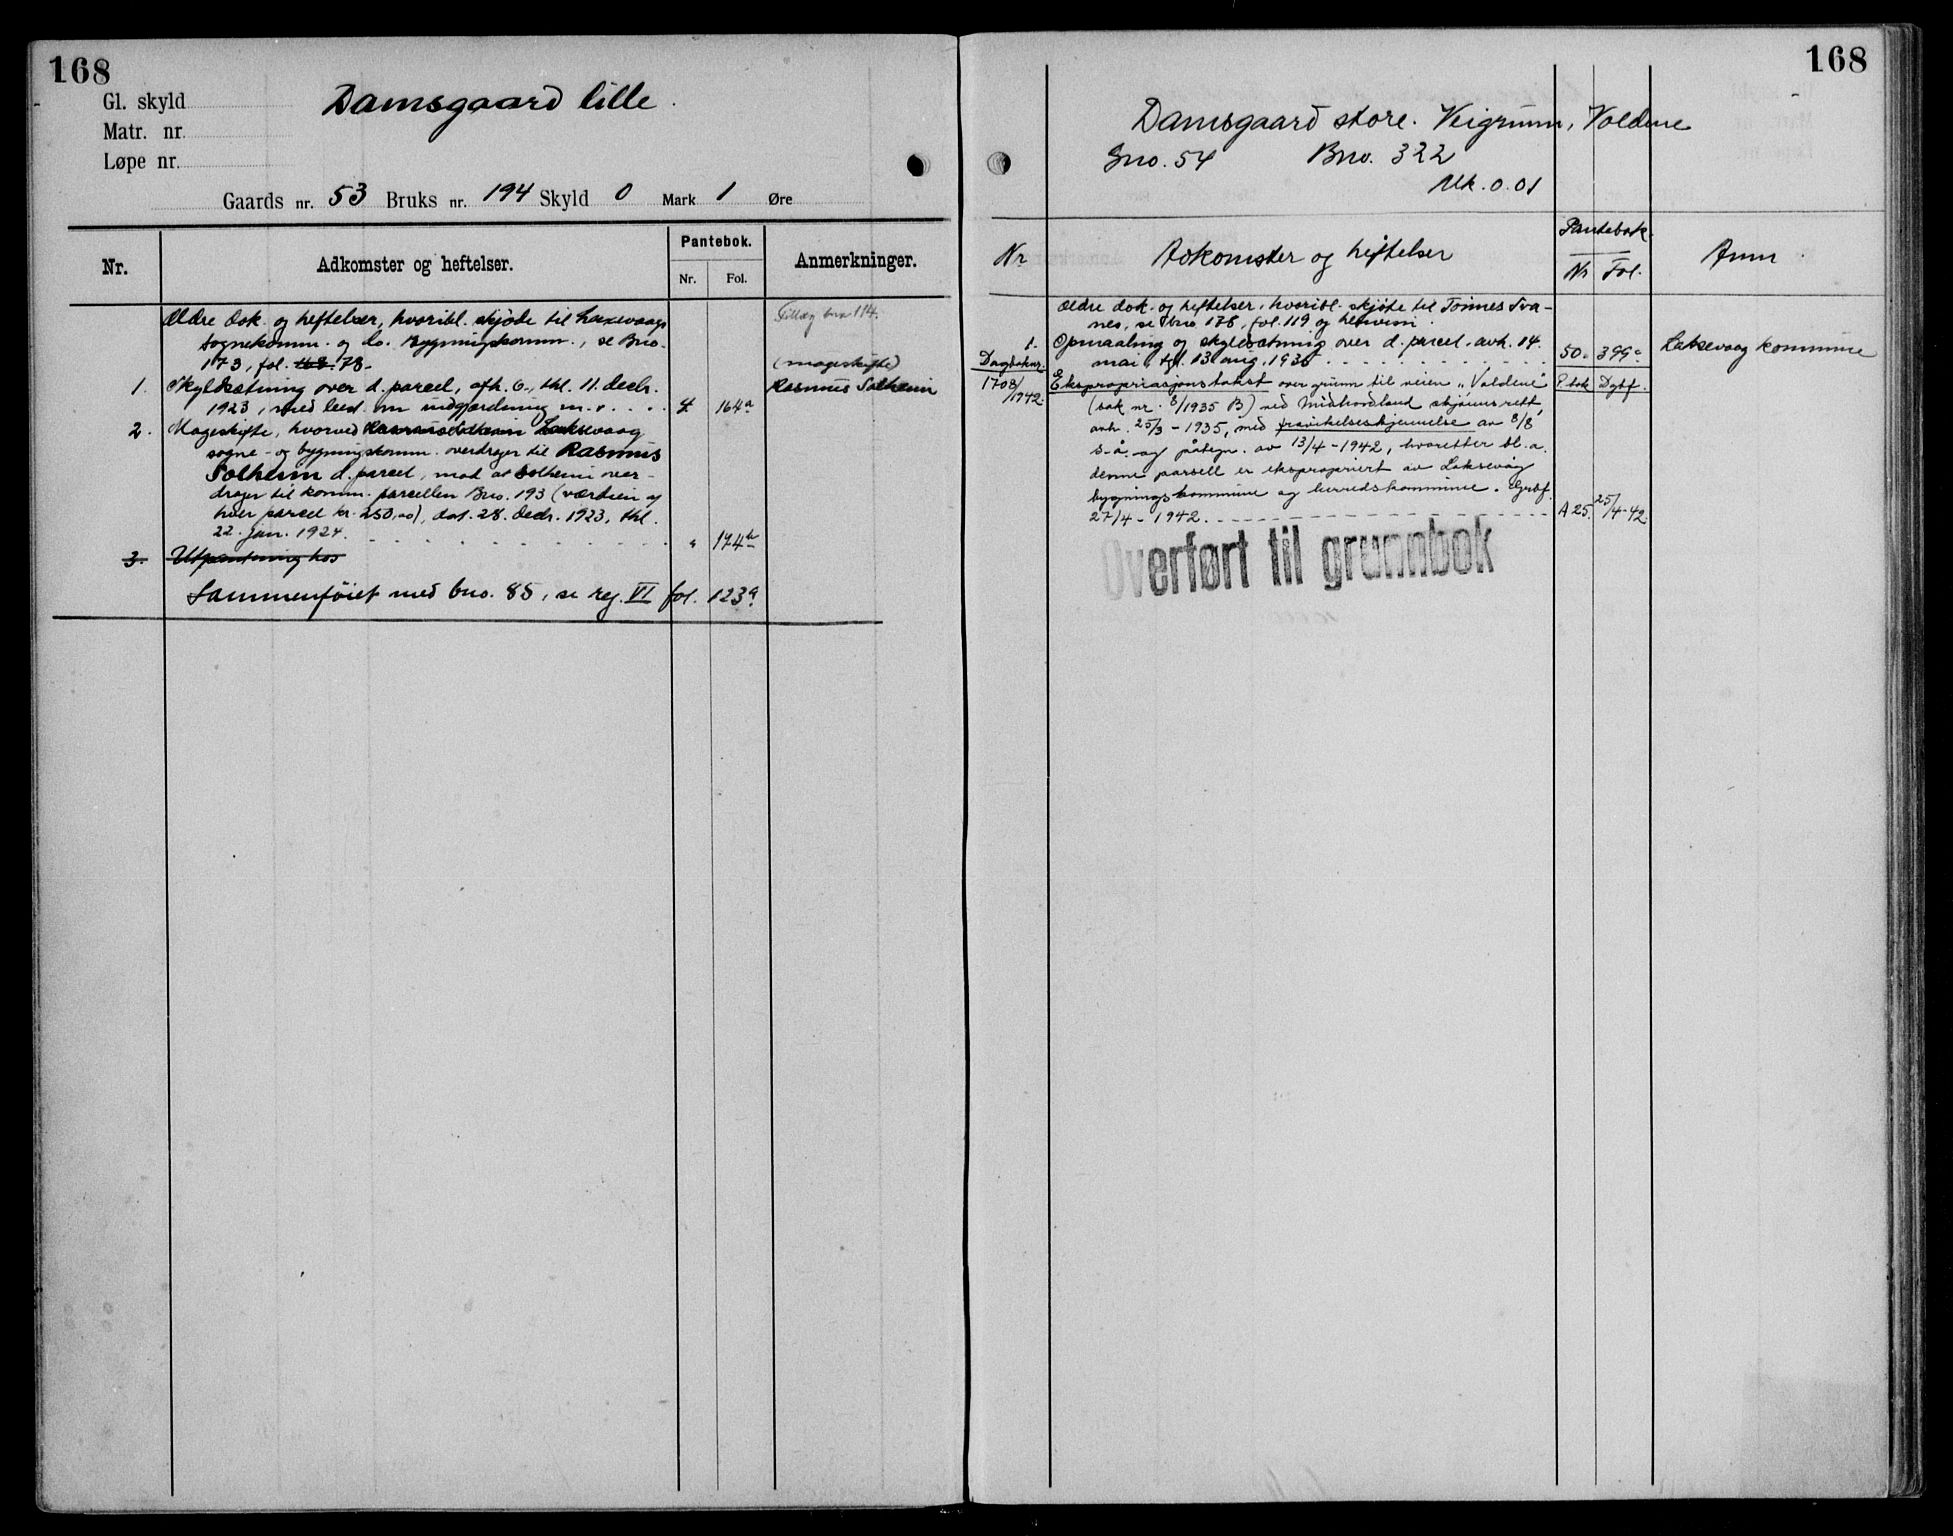 168
Gl. skyld
Matr. nr.
Løpe nr.
Damsgaard lille.
Gaards nr. 53 Bruks nr. 194 Skyld 0 Mark 1 Øre
Nr.
Adkomster og heftelser.
Pantebok.
Nr. Fol.
Anmerkninger.
Ældre dok. og heftelser, hvoribl. skjøde til Laxevaags
sognekomm. og do. Bygningskomm., se Bno.
173, fol. 78.
Tillæg bno 114.
(mageskifte)
Rasmus Solheim
1. Skyldsætning over d. parcel, afh. 6., thl. 11. decbr.
1923, med best. om indgjærdning m.v. . . . 4 164a
2. Mageskifte, hvorved Laksevaag
sogne- og bygningskomm. overdrager til Rasmus
Solheim d. parcel, mod at Solheim over-
drager til komm. parcellen Bno. 193 (værdien af
hver parcel kr. 250,00), dat. 28. decbr. 1923, thl.
22. jan. 1924. " 174b
3. Utpantning hos
Sammenføiet med bno. 85, se reg. VI fol. 123a
168
Damsgaard store. Veigrunn, Voldene
Gno. 54 Bno. 322
Mk. 0.01
Nr
Adkomster og heftelser
Pantebok.
Nr Fol.
Anm.
Ældre dok. og heftelser, hvoribl. skjøte til Tønnes Sva-
nes, se bno 178, fol. 119 og henvisn.
1. Opmaaling og skyldsætning over d. parcel. avh. 14.
mai, tgl. 13 aug. 1935 . . . . 50. 399a
Laksevaag kommune
Dagboknr.
1708/1942
P.bok Dgbf.
Ekspropriasjonstakst over grunn til veien "Voldene"
(sak nr. 8/1935 B) ved Midhordland skjønnsrett,
avh. 25/3 - 1935, med fravikelseskjennelse av 8/8
s.å. og påtegn. av 13/4 - 1942, hvoretter bl.a.
denne parsell er ekspropriert av Laksevåg
bygningskommune og herredskommune. Grbf.
27/4 - 1942. A 25. 25/4-42
Overført til grunnbok